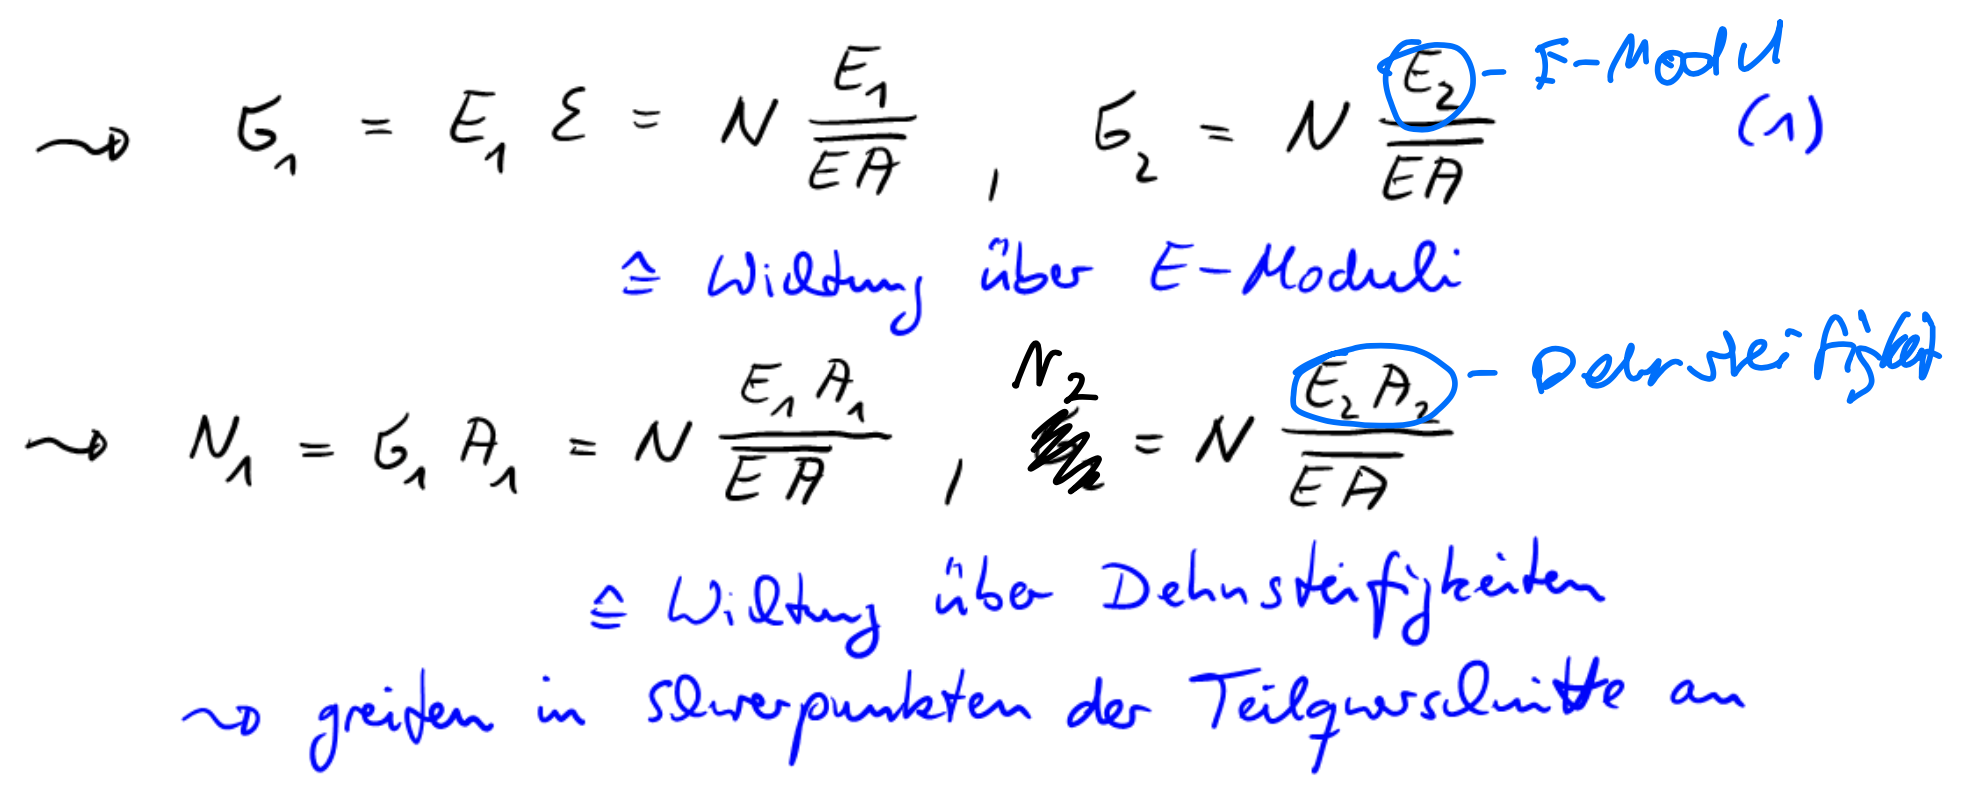 ⇝ σ₁ = E₁ ε = N E₁/\overline{EA} , σ₂ = N E₂/\overline{EA} - E-Modul (1)
≙ Wichtung über E-Moduli
⇝ N₁ = σ₁ A₁ = N E₁A₁/\overline{EA} , N₂ = N E₂A₂/\overline{EA} - Dehnsteifigkeit
≙ Wichtung über Dehnsteifigkeiten
⇝ greifen in Schwerpunkten der Teilquerschnitte an